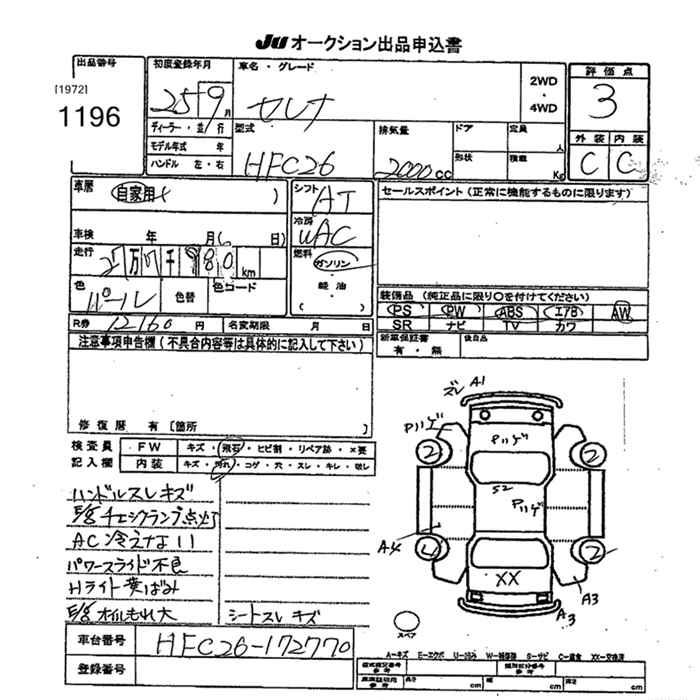 JU オークション出品申込書
出品番号
[1972]
1196
初度登録年月
25 9 月
ディーラー・並/行
モデル年式 年
ハンドル 左・右
車名・グレード
セレナ
2WD
・
4WD
評価点
3
外装 内装
C C
型式
HFC26
排気量
2000 CC
ドア 定員 人
形状 積載 Kg
車歴
自家用 )
車検 年 月 日)
走行
万 千 980 km
色
パール
色替
色コード
シフト
AT
冷房
AC
燃料
ガソリン
・
軽油
( )
セールスポイント(正常に機能するものに限ります)
装備品(純正品に限り○を付けてください)
PS PW ABS エアB AW
SR ナビ TV カワ
R券 12160 円 名変期限 月 日
新車保証書
有・無
後日品
注意事項申告欄(不具合内容等は具体的に記入して下さい)
修復歴 有〔箇所 〕
検査員
記入欄
FW キズ・飛石・ヒビ割・リペア跡・×要
内装 キズ・汚れ・コゲ・穴・スレ・キレ・欠レ
ハンドルスレキズ
E/g チェックランプ点灯
AC冷えない
パワースライド不良
Hライト黄ばみ
E/g オイルもれ大
シートスレキズ
ズレ A1
Pハゲ
Pハゲ
2 2
S2
Pハゲ
A4
2
XX
A3
A3
スペア
車台番号 HFC26-172770
登録番号
A-キズ E-エクボ U-凹み W-補修跡 S-サビ C-腐食 XX-交換済
型式指定番号 参考
類別区分番号 参考
長さ cm 幅 cm 高さ cm